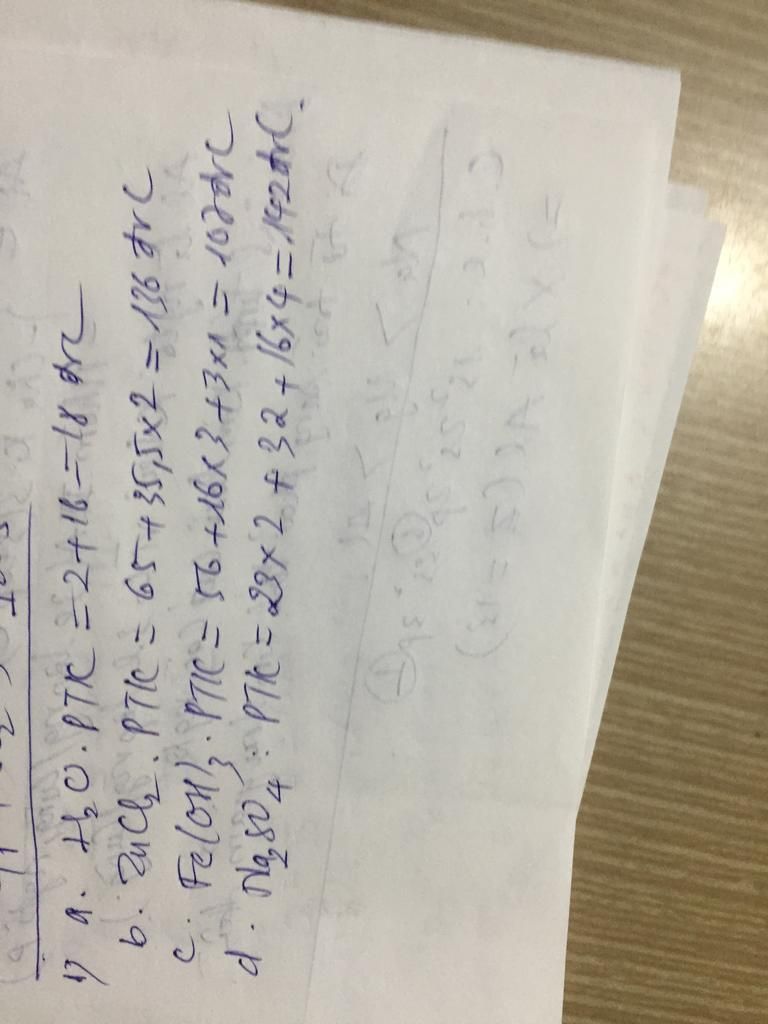 1) a. H₂O. PTK = 2 + 16 = 18 đvC
b. ZnCl₂. PTK = 65 + 35,5 x 2 = 136 đvC
c. Fe(OH)₃. PTK = 56 + 16 x 3 + 3 x 1 = 107 đvC
d. Na₂SO₄. PTK = 23 x 2 + 32 + 16 x 4 = 142 đvC.